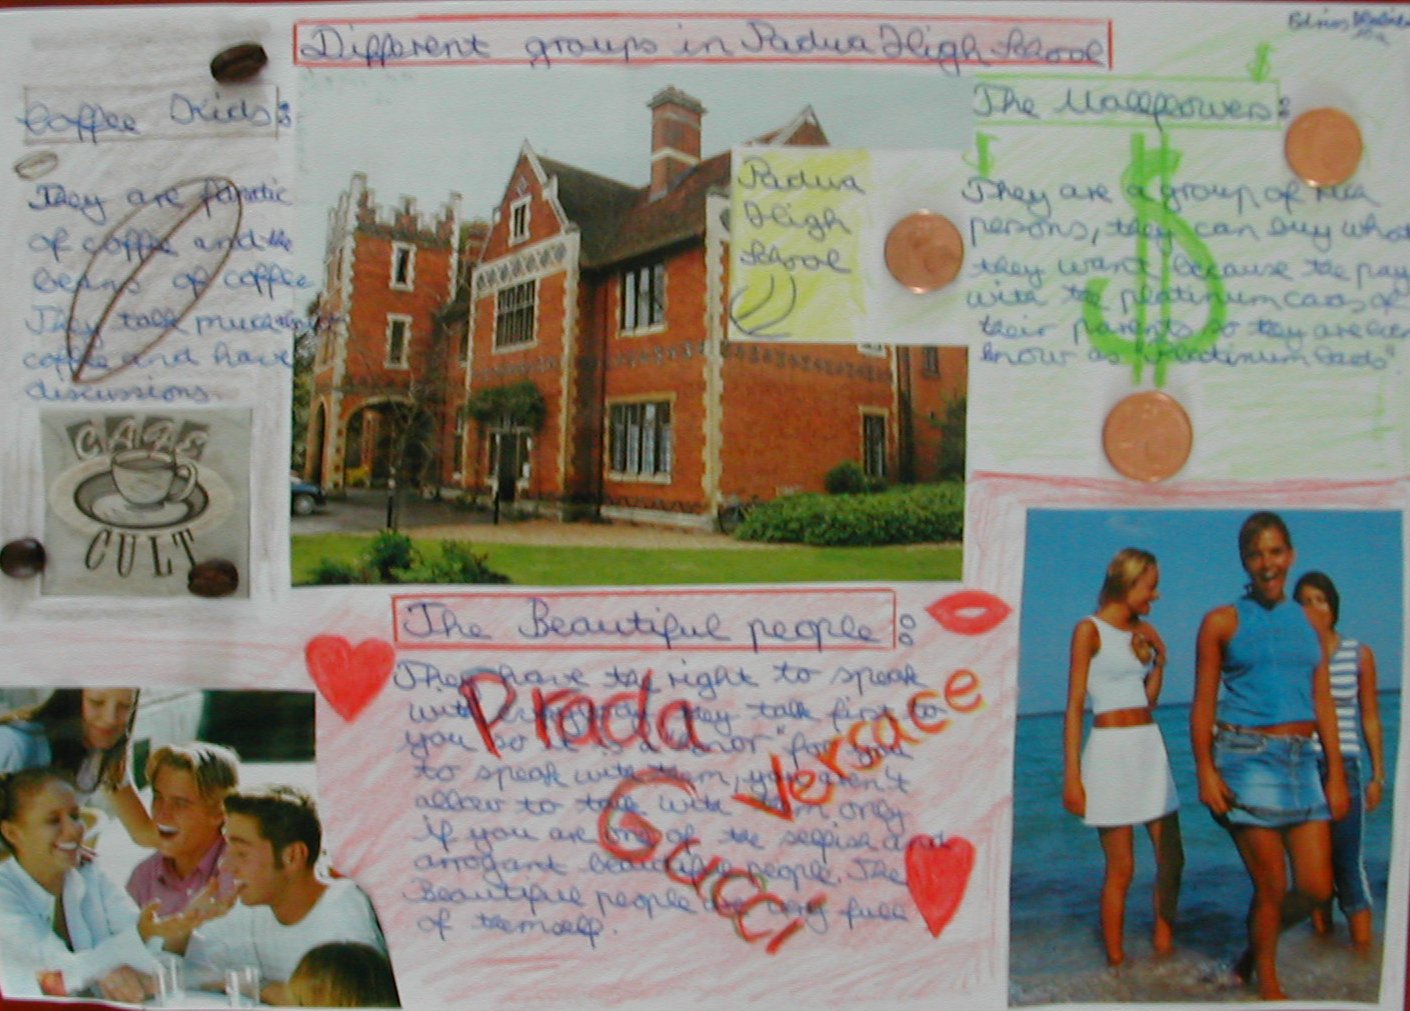 Different groups in Padua High School
Coffee Kids:
They are fanatic
of coffee and the
beans of coffee
They talk much about
coffee and have
discussions.
CAFE
CULT
Padua
High
School
The Mallflowers:
$
$
They are a group of rich
persons, they can buy what
they want because the pay
with the platinum cards of
their parents so they are
know as "Platinum Cards".
$
The Beautiful people:
They have the right to speak
with they talk first to
you so it is a "honor" for you
to speak with them, you aren't
allow to talk with them only
if you are one of the selfish and
arrogant beautiful people. The
Beautiful people are very full
of themself.
Prada
Versace
Gucci